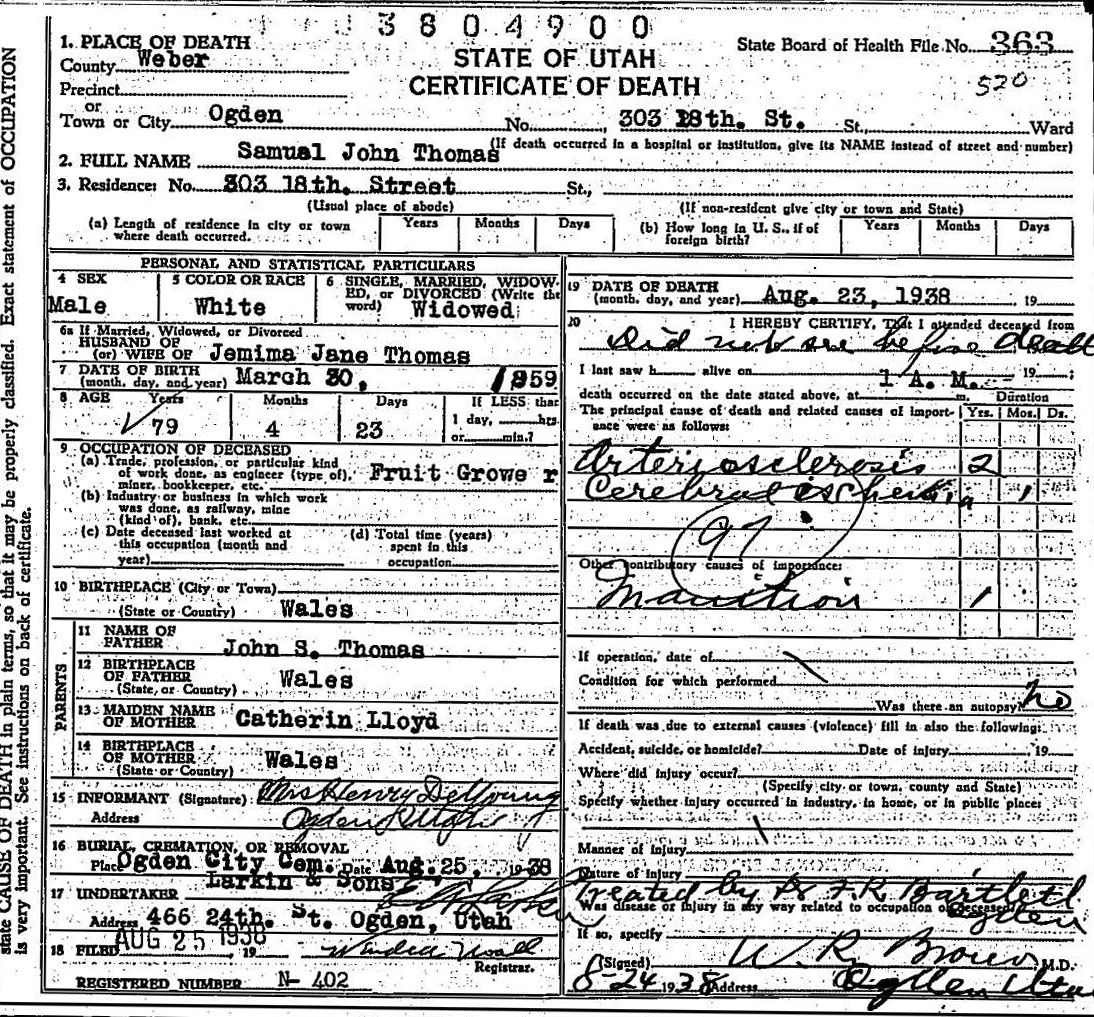 3804900
1. PLACE OF DEATH
County Weber
STATE OF UTAH
State Board of Health File No. 363
520
Precinct
CERTIFICATE OF DEATH
or
Town or City Ogden No. 303 18th. St. St., Ward
(If death occurred in a hospital or institution, give its NAME instead of street and number)
2. FULL NAME Samual John Thomas
3. Residence: No. 303 18th. Street St.,
(Usual place of abode) (If non-resident give city or town and State)
(a) Length of residence in city or town where death occurred. Years Months Days (b) How long in U. S., if of foreign birth? Years Months Days
PERSONAL AND STATISTICAL PARTICULARS
4 SEX
Male
5 COLOR OR RACE
White
6 SINGLE, MARRIED, WIDOWED, or DIVORCED (Write the word)
Widowed
6a If Married, Widowed, or Divorced
HUSBAND OF
(or) WIFE OF Jemima Jane Thomas
7 DATE OF BIRTH
(month, day, and year) March 30, 1859
8 AGE Years Months Days If LESS than
1 day, hrs.
or min.?
79 4 23
9 OCCUPATION OF DECEASED
(a) Trade, profession, or particular kind
of work done, as engineer (type of), Fruit Growe r
miner, bookkeeper, etc.
(b) Industry or business in which work
was done, as railway, mine
(kind of), bank, etc.
(c) Date deceased last worked at
this occupation (month and
year)
(d) Total time (years)
spent in this
occupation
10 BIRTHPLACE (City or Town)
(State or Country) Wales
PARENTS
11 NAME OF
FATHER John S. Thomas
12 BIRTHPLACE
OF FATHER
(State, or Country) Wales
13 MAIDEN NAME
OF MOTHER Catherin Lloyd
14 BIRTHPLACE
OF MOTHER
(State or Country) Wales
15 INFORMANT (Signature) Mrs Henry DeYoung
Address Ogden Utah
16 BURIAL, CREMATION, OR REMOVAL
Place Ogden City Cem. Date Aug. 25, 1938
17 UNDERTAKER Larkin & Sons
Address 466 24th. St. Ogden, Utah
18 FILED AUG 25 1938, 19
Registrar.
REGISTERED NUMBER N- 402
19 DATE OF DEATH
(month, day, and year) Aug. 23, 1938, 19
20 I HEREBY CERTIFY, That I attended deceased from
Did not see before death
I last saw h alive on 19 ;
death occurred on the date stated above, at 1 A. M. m. Duration
The principal cause of death and related causes of importance were as follows: Yrs. Mos. Ds.
Arteriosclerosis 2
Cerebral ischemia 1
97
Other contributory causes of importance:
Inanition 1
If operation, date of
Condition for which performed
Was there an autopsy? no
If death was due to external causes (violence) fill in also the following:
Accident, suicide, or homicide? Date of injury 19
Where did injury occur?
(Specify city or town, county and State)
Specify whether injury occurred in industry, in home, or in public place:
Manner of injury
Nature of injury
Treated by Dr F.R. Bartlett
Ogden
Was disease or injury in any way related to occupation of deceased?
If so, specify
(Signed) W. R. Brown M.D.
8-24 1938 Address Ogden Utah
state CAUSE OF DEATH in plain terms, so that it may be properly classified. Exact statement of OCCUPATION
is very important. See instructions on back of certificate.